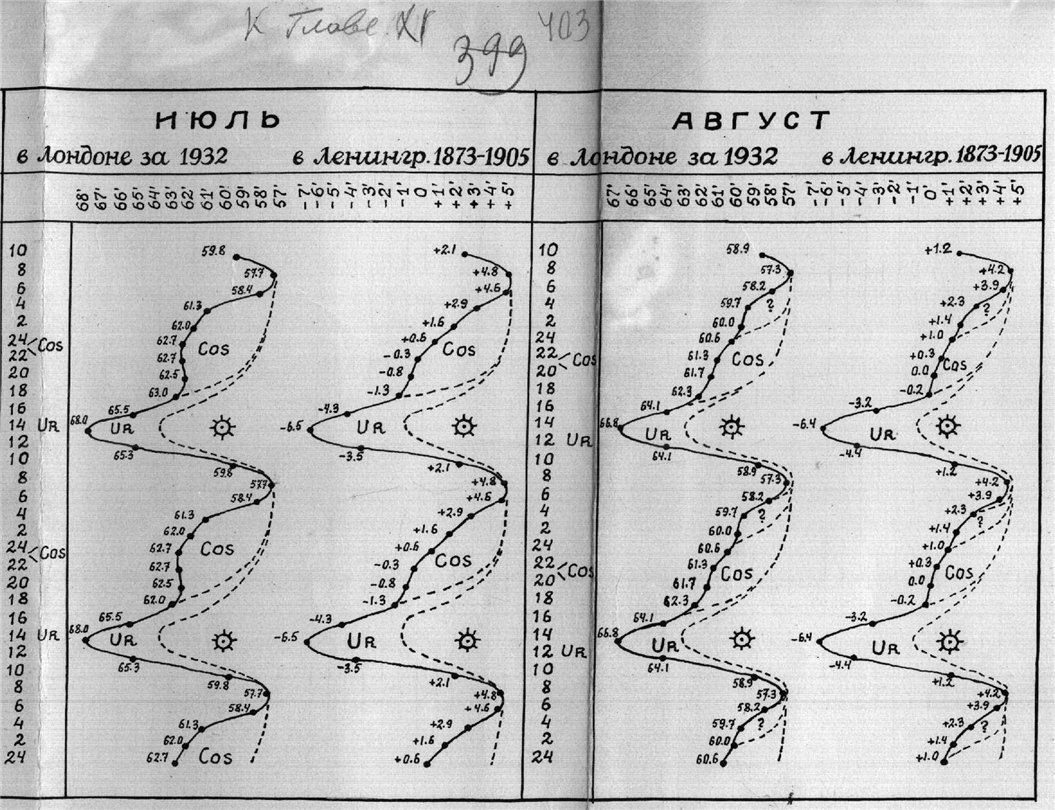 К Главе XI
403
399
ИЮЛЬ
АВГУСТ
в Лондоне за 1932 в Ленингр. 1873-1905 в Лондоне за 1932 в Ленингр. 1873-1905
68' 67' 66' 65' 64' 63' 62' 61' 60' 59' 58' 57' -7' -6' -5' -4' -3' -2' -1' 0 +1' +2' +3' +4' +5' 67' 66' 65' 64' 63' 62' 61' 60' 59' 58' 57' -7' -6' -5' -4' -3' -2' -1' 0' +1' +2' +3' +4' +5'
10 59.8 +2.1 10 58.9 +1.2
8 57.7 +4.8 8 57.3 +4.2
6 58.4 +4.6 6 58.2 +3.9
4 61.3 +2.9 4 59.7 ? +2.3 ?
2 62.0 +1.6 2 60.0 +1.4
24 62.7 +0.6 24 60.6 +1.0
Cos Cos Cos
22 62.7 -0.3 22 61.3 Cos +0.3 Cos
Cos
20 62.5 -0.8 20 61.7 0.0
18 63.0 -1.3 18 62.3 -0.2
16 65.5 -4.3 16 64.1 -3.2
14 UR 68.0 UR -6.5 UR 14 66.8 UR -6.4 UR
12 65.3 -3.5 12 UR 64.1 -4.4
10 59.8 +2.1 10 58.9 +1.2
8 57.7 +4.8 8 57.3 +4.2
6 58.4 +4.6 6 58.2 +3.9
4 61.3 +2.9 4 59.7 ? +2.3 ?
2 62.0 +1.6 2 60.0 +1.4
24 62.7 +0.6 24 60.6 +1.0
Cos Cos Cos
22 62.7 -0.3 22 61.3 Cos +0.3 Cos
Cos
20 62.5 -0.8 20 61.7 0.0
18 62.0 -1.3 18 62.3 -0.2
16 65.5 -4.3 16 64.1 -3.2
14 UR 68.0 UR -6.5 UR 14 66.8 UR -6.4 UR
12 65.3 -3.5 12 UR 64.1 -4.4
10 59.8 +2.1 10 58.9 +1.2
8 57.7 +4.8 8 57.3 +4.2
6 58.4 +4.6 6 58.2 +3.9
4 61.3 +2.9 4 59.7 ? +2.3 ?
2 62.0 Cos +1.6 2 60.0 +1.4
24 62.7 +0.6 24 60.6 +1.0